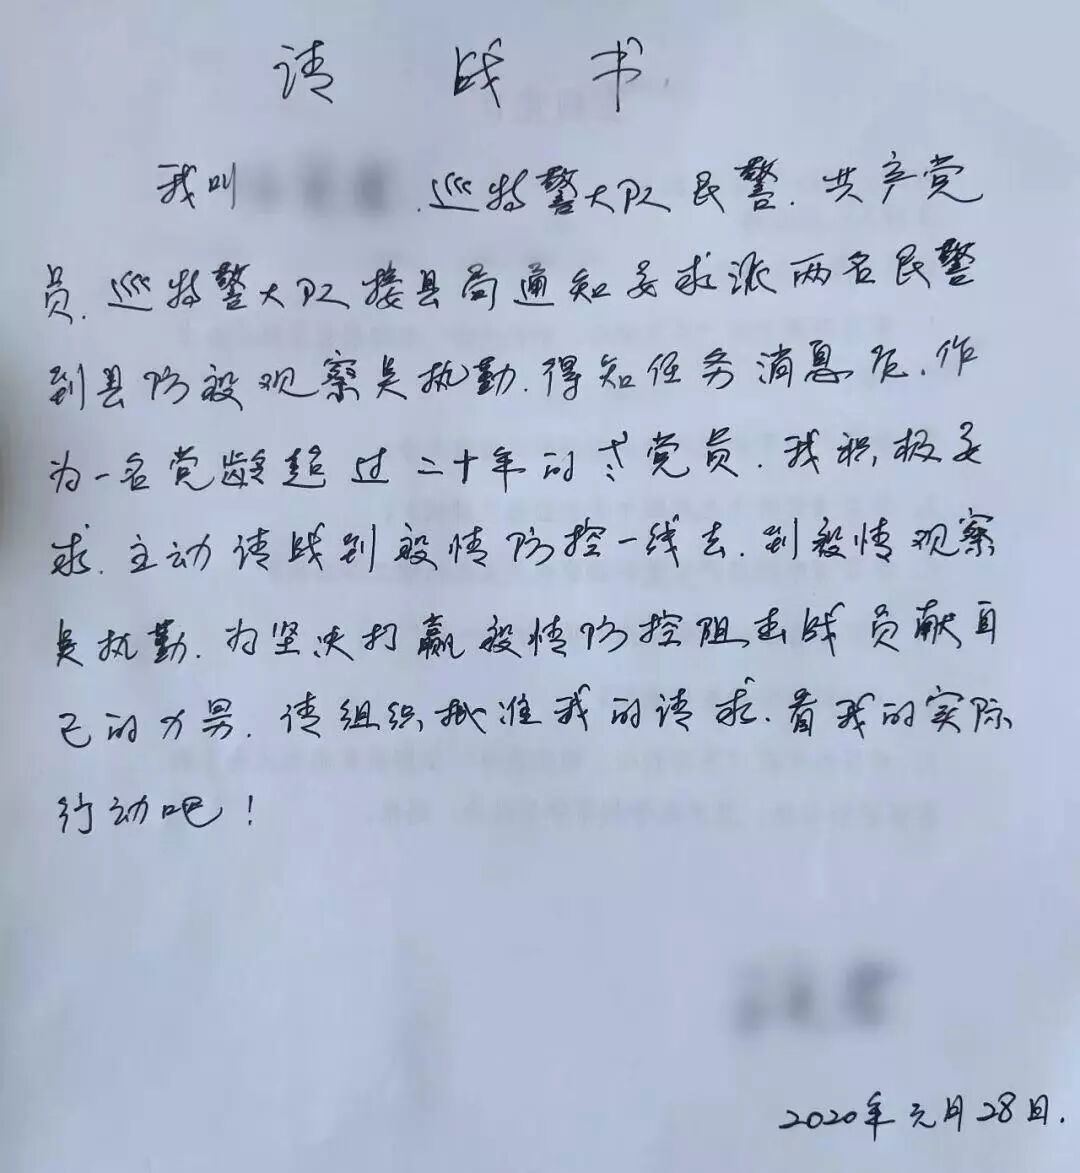 请战书
我叫 ,巡特警大队民警.共产党
员.巡特警大队接县局通知要求派两名民警
到县防疫观察点执勤.得知任务消息后,作
为一名党龄超过二十年的老党员.我积极要
求.主动请战到疫情防控一线去.到疫情观察
点执勤.为坚决打赢疫情防控阻击战贡献自
己的力量.请组织批准我的请求.看我的实际
行动吧!
2020年元月28日.